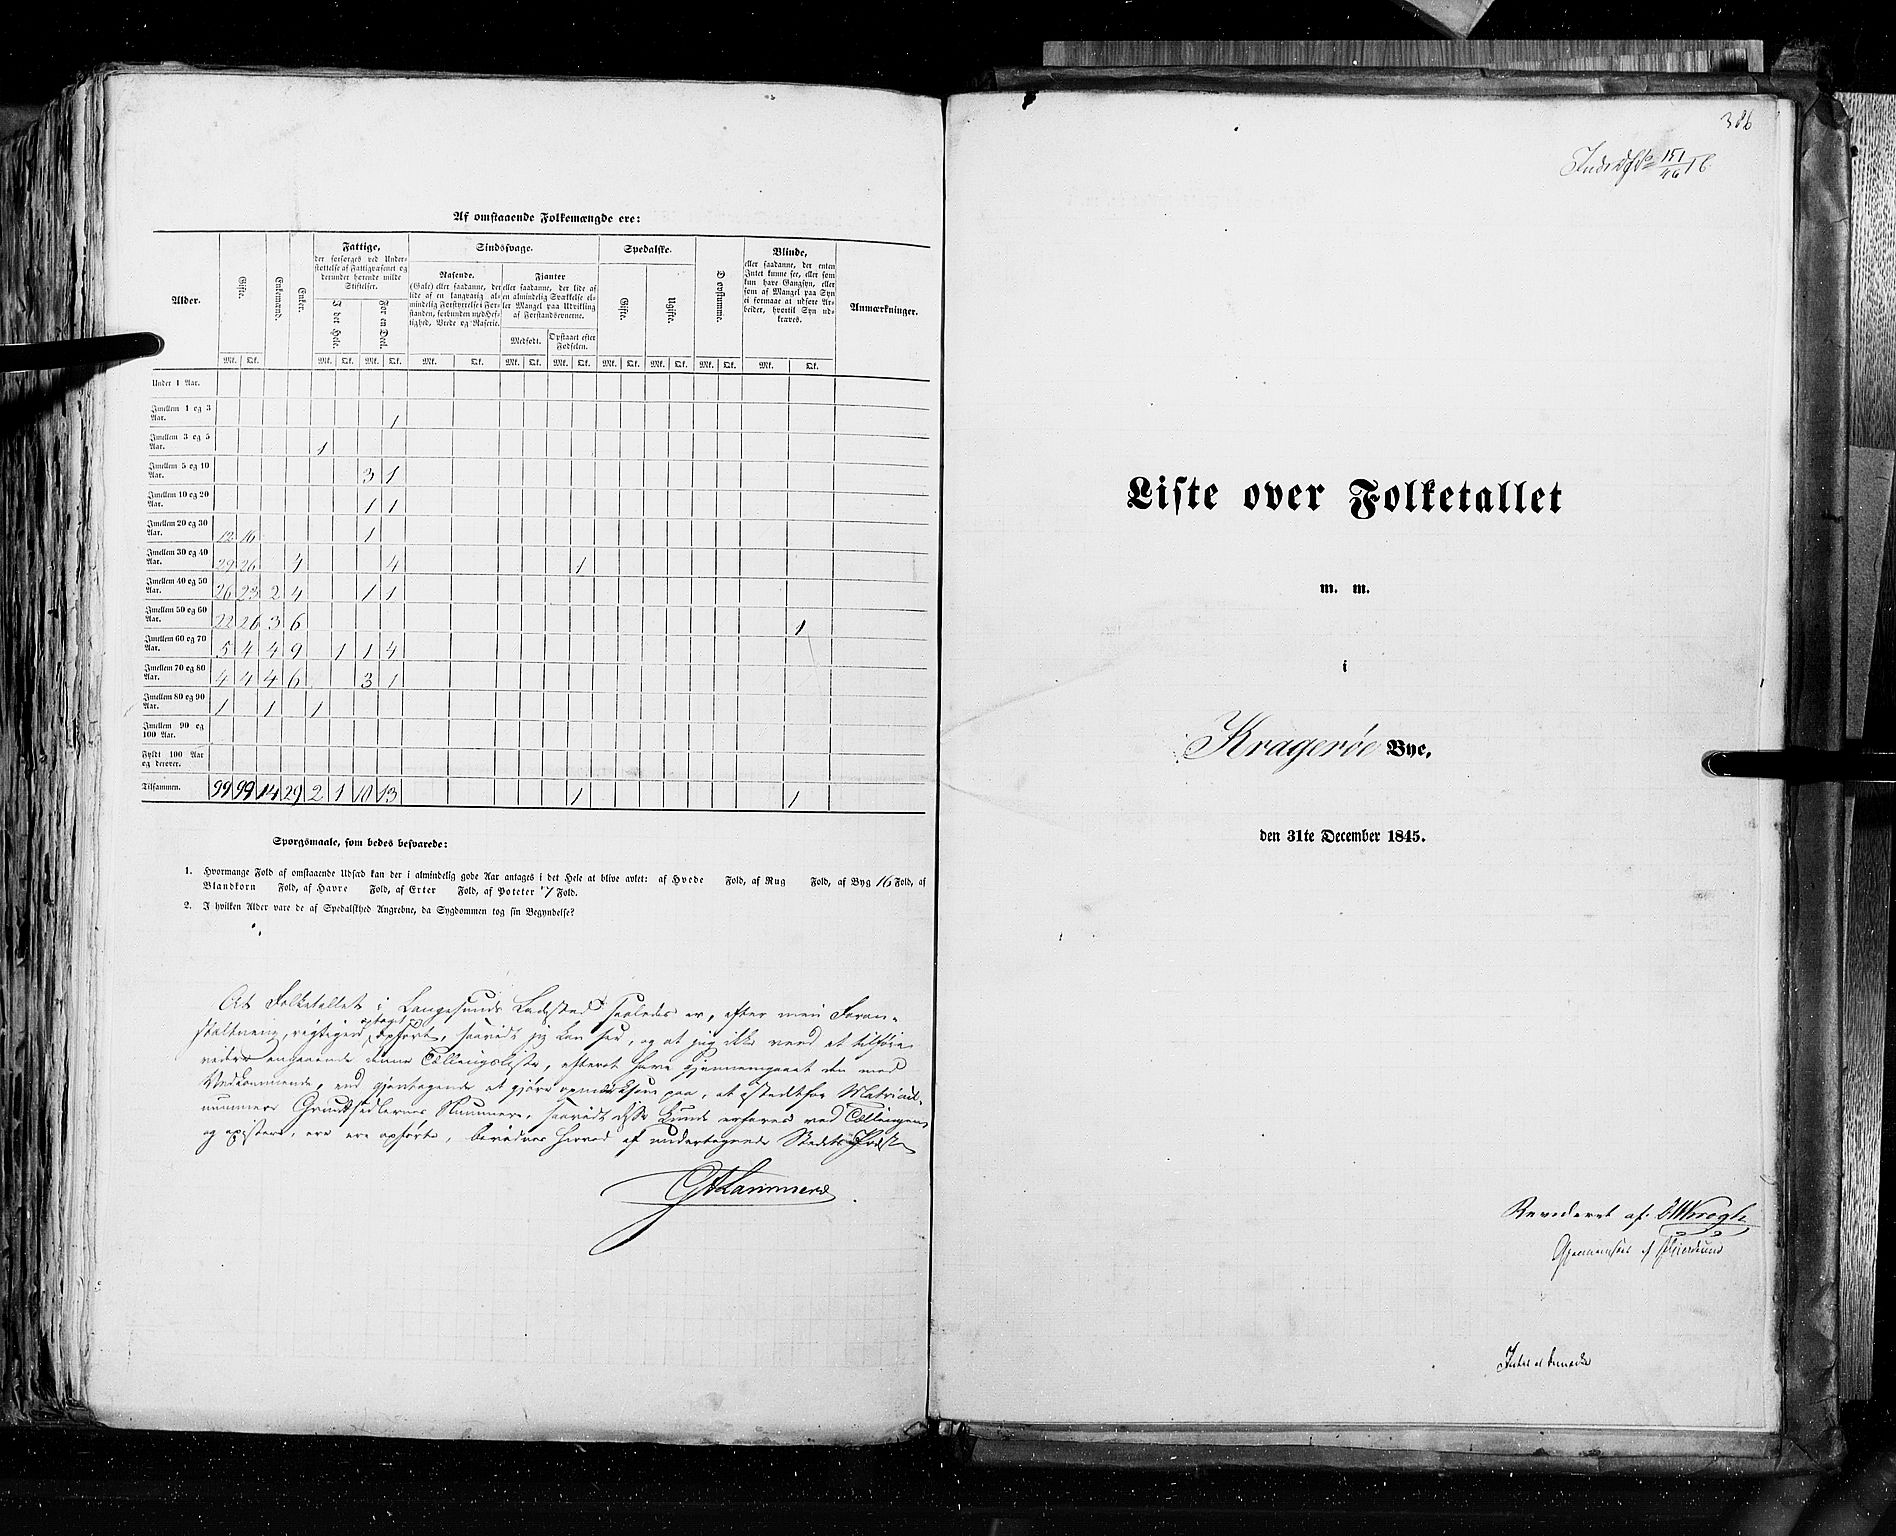 Af omstaaende Folkemængde ere:
Alder. Gifte. Enkemænd. Enker. Fattige, der forsørges ved Understøttelse af Fattigvæsenet og derunder hørende milde Stiftelser. Sindssvage. Spedalske. Døvstumme. Blinde, eller saadanne, der enten Intet kunne see, eller som kun have Gangsyn, eller som af Mangel paa Syn ei formaae at udføre Arbeider, hvortil Syn udkræves. Anmærkninger.
I det Hele. For en Deel. Rasende. (Gale) eller saadanne, der lide af en langvarig almindelig Forstyrrelse i Forstanden, forbunden med Heftighed, Vrede og Raserie. Fjanter eller saadanne, der lide af en almindelig Svækkelse eller Mangel paa Udvikling af Forstandsevnerne. Gifte. Ugifte.
Medfødt. Opstaaet efter Fødselen.
Mk. Qk. Mk. Qk. Mk. Qk. Mk. Qk. Mk. Qk. Mk. Qk. Mk. Qk. Mk. Qk. Mk. Qk. Mk. Qk.
Under 1 Aar.
Imellem 1 og 3 Aar. 1
Imellem 3 og 5 Aar. 1
Imellem 5 og 10 Aar. 3 1
Imellem 10 og 20 Aar. 1 1
Imellem 20 og 30 Aar. 12 16 1
Imellem 30 og 40 Aar. 29 26 4 4 1
Imellem 40 og 50 Aar. 26 23 2 4 1 1
Imellem 50 og 60 Aar. 22 26 3 6 1
Imellem 60 og 70 Aar. 5 4 4 9 1 1 4
Imellem 70 og 80 Aar. 4 4 4 6 3 1
Imellem 80 og 90 Aar. 1 1 1
Imellem 90 og 100 Aar.
Fyldt 100 Aar og derover.
Tilsammen. 99 99 14 29 2 1 10 13 1 1
Spørgsmaale, som bedes besvarede:
1. Hvormange Fold af omstaaende Udsæd kan der i almindelig gode Aar antages i det Hele at blive avlet: af Hvede Fold, af Rug Fold, af Byg 16 Fold, af
Blandkorn Fold, af Havre Fold, af Erter Fold, af Poteter 7 Fold.
2. I hvilken Alder vare de af Spedalskhed Angrebne, da Sygdommen tog sin Begyndelse?
At Folketallet i Langesunds Ladested saaledes er, efter min Foran-
staltning, rigtigen optaget opført, saavidt jeg kan see, og at jeg ikke veed at tilføie
videre angaaende denne Tællingsliste, efterat have gjennemgaaet den med
Vedkommende, ved gjentagende at gjøre opmærksom paa, at istedetfor Matricul-
nummere Grundsedlernes Nummere, saavidt disse kunde erfares ved Tællingen
og existere, ere opførte, bevidnes herved af undertegnede Stedets Præst
G A Lammers
386
151
46
Liste over Folketallet
m. m.
i
Kragerøe Bye.
den 31te December 1845.
Revideret af
Gjennemseet af